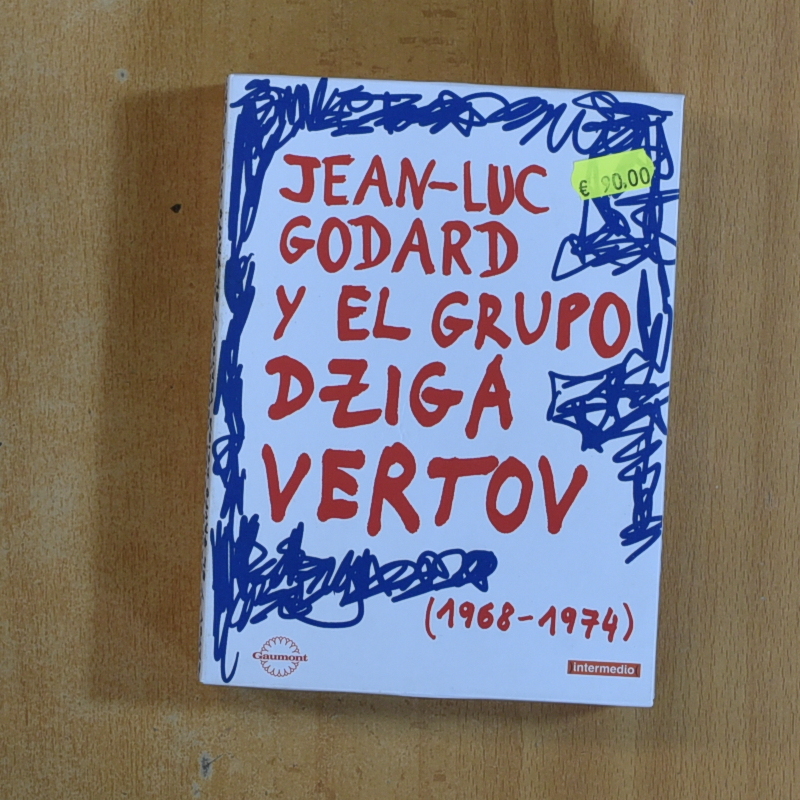 JEAN-LUC
GODARD
€ 90.00
Y EL GRUPO
DZIGA
VERTOV
(1968-1974)
Gaumont
intermedio